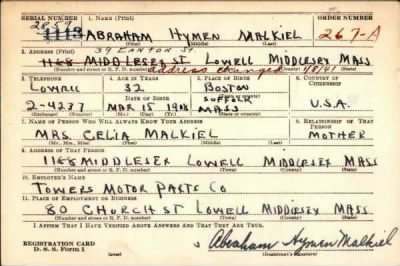 SERIAL NUMBER 1. NAME (Print) ORDER NUMBER
2859
1113 ABRAHAM HYMEN MALKIEL 267-A
(First) (Middle) (Last)
2. ADDRESS (Print) 39 CANTON ST.
1168 MIDDLESEX ST LOWELL MIDDLESEX MASS
(Number and street or R. F. D. number) (Town) (County) (State)
address changed 1/8/41
3. TELEPHONE 4. AGE IN YEARS 5. PLACE OF BIRTH 6. COUNTRY OF CITIZENSHIP
LOWELL 32 BOSTON
DATE OF BIRTH SUFFOLK
2-4277 MAR 15 1908 MASS U.S.A.
(Exchange) (Number) (Mo.) (Day) (Yr.) (State or country)
7. NAME OF PERSON WHO WILL ALWAYS KNOW YOUR ADDRESS 8. RELATIONSHIP OF THAT PERSON
MRS. CELIA MALKIEL MOTHER
(Mr., Mrs., Miss) (First) (Middle) (Last)
9. ADDRESS OF THAT PERSON
1168 MIDDLESEX LOWELL MIDDLESEX MASS
(Number and street or R. F. D. number) (Town) (County) (State)
10. EMPLOYER'S NAME
TOWERS MOTOR PARTS CO
11. PLACE OF EMPLOYMENT OR BUSINESS
80 CHURCH ST LOWELL MIDDLESEX MASS
(Number and street or R. F. D. number) (Town) (County) (State)
I AFFIRM THAT I HAVE VERIFIED ABOVE ANSWERS AND THAT THEY ARE TRUE.
REGISTRATION CARD
D. S. S. Form 1 Abraham Hymen Malkiel
(Registrant's signature)